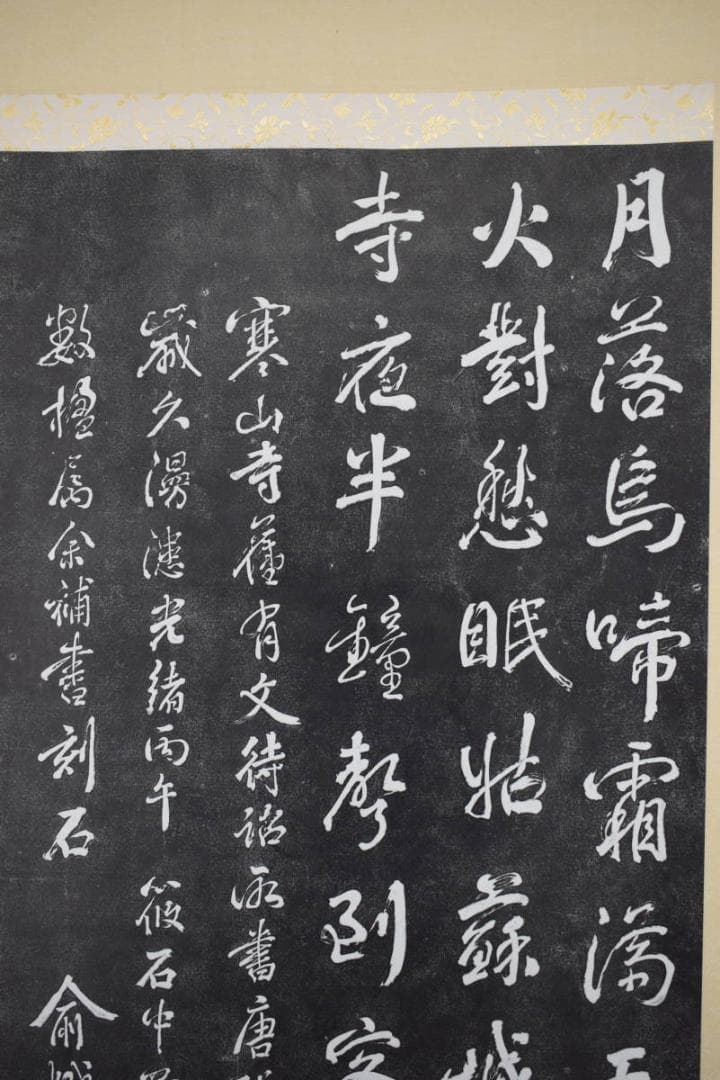 月落烏啼霜滿
火對愁眠姑蘇城
寺夜半鐘聲到客
寒山寺舊有文待詔所書唐
歲久漫漶光緒丙午 筱石中
數楹屬余補書刻石
俞樾